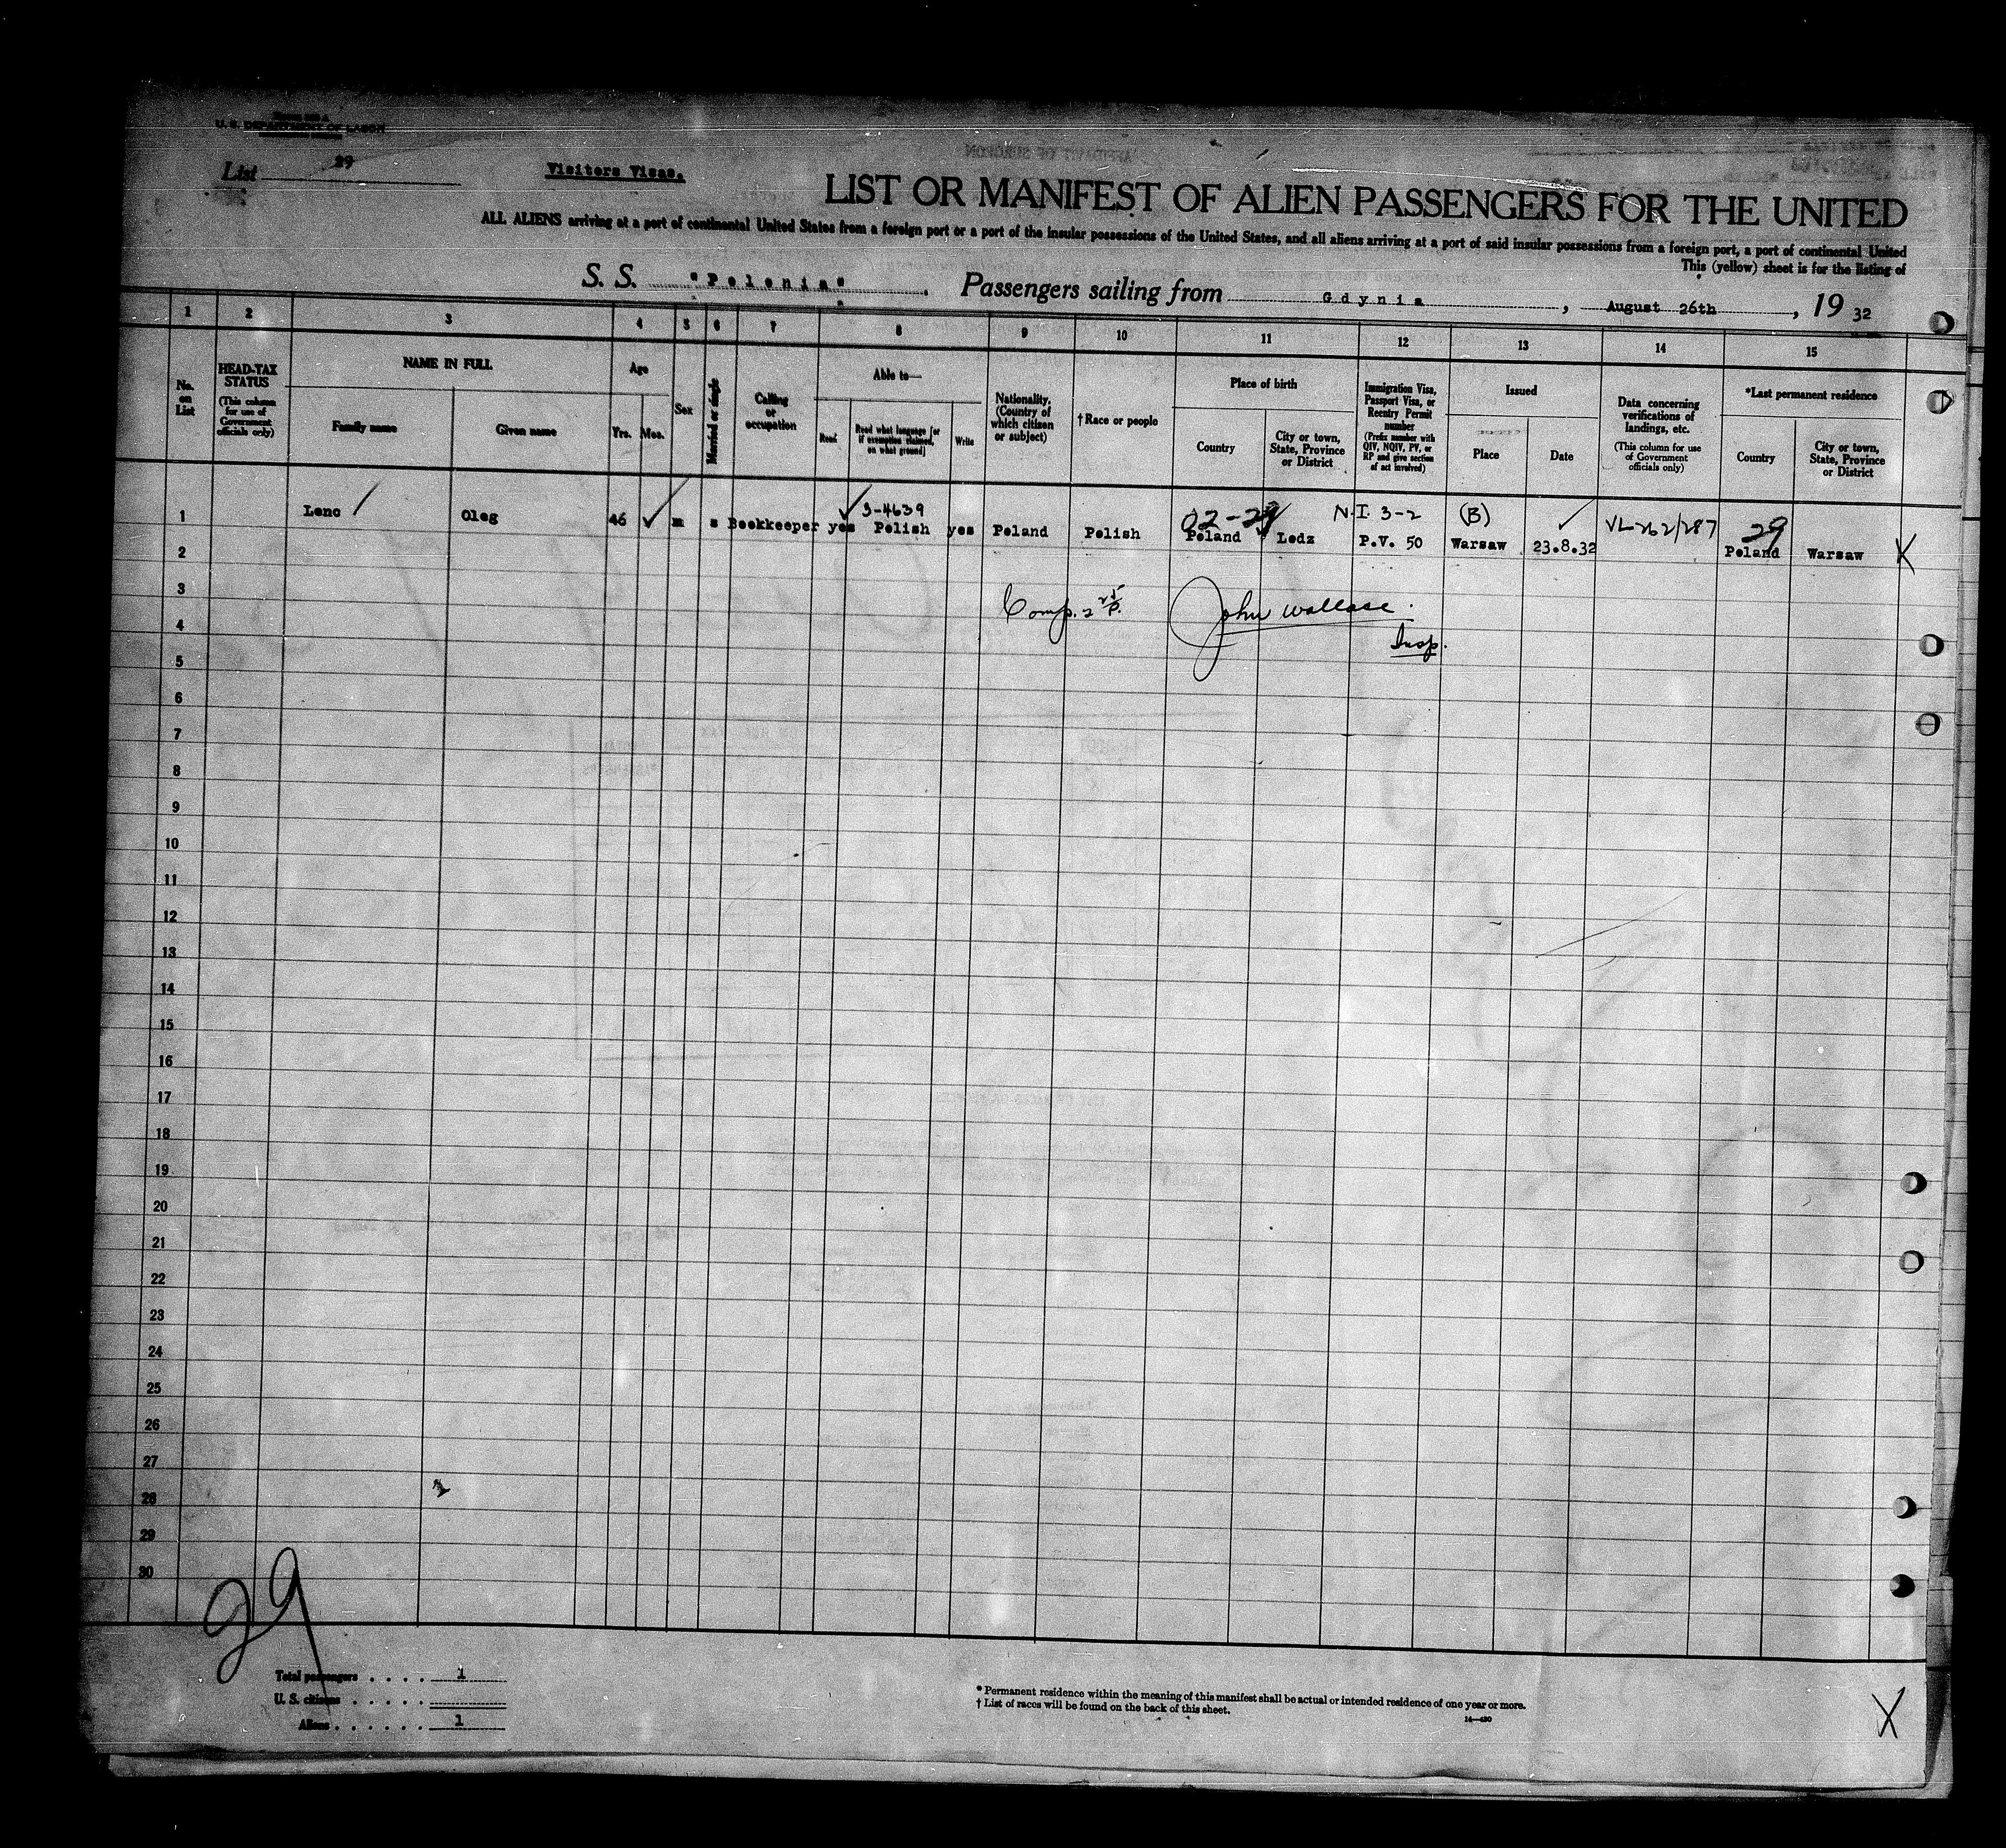 U. S. DEPARTMENT OF LABOR
List 29
Visitors Visas.
LIST OR MANIFEST OF ALIEN PASSENGERS FOR THE UNITED
ALL ALIENS arriving at a port of continental United States from a foreign port or a port of the insular possessions of the United States, and all aliens arriving at a port of said insular possessions from a foreign port, a port of continental United
This (yellow) sheet is for the listing of
S. S. "Polonia" . Passengers sailing from Gdynia , August 26th , 19 32
1 2 3 4 5 6 7 8 9 10 11 12 13 14 15
No. on List
HEAD-TAX STATUS (This column for use of Government officials only)
NAME IN FULL
Family name
Given name
Age
Yrs. Mos.
Sex
Married or single
Calling or occupation
Able to—
Read
Read what language [or if exemption claimed, on what ground]
Write
Nationality. (Country of which citizen or subject)
†Race or people
Place of birth
Country
City or town, State, Province or District
Immigration Visa, Passport Visa, or Reentry Permit number (Prefix number with QIV, NQIV, PV, or RP and give section of act involved)
Issued
Place
Date
Data concerning verifications of landings, etc. (This column for use of Government officials only)
*Last permanent residence
Country
City or town, State, Province or District
3-4639 02-29 N.I. 3-2 (B) VL-262/287 29
1 Lenc Oleg 46 m s Bookkeeper yes Polish yes Poland Polish Poland Lodz P.V. 50 Warsaw 23.8.32 Poland Warsaw X
2
3
Comp. John Wallace
4
Insp.
5
6
7
8
9
10
11
12
13
14
15
16
17
18
19
20
21
22
23
24
25
26
27
28
29
30
29
Total passengers . . . . 1
U. S. citizens . . . . .
Aliens . . . . . . 1
* Permanent residence within the meaning of this manifest shall be actual or intended residence of one year or more.
† List of races will be found on the back of this sheet.
14—480
X